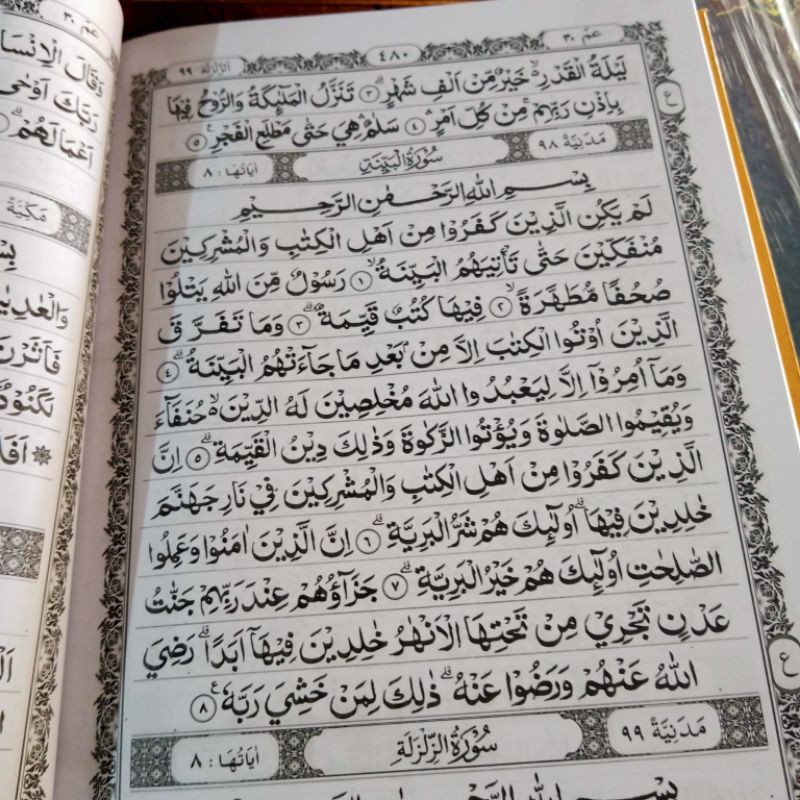 عم ٣٠
٤٨٠
الزلزلة ٩٩
لَيْلَةُ الْقَدْرِ ۙ خَيْرٌ مِّنْ اَلْفِ شَهْرٍ ۗ ٣ تَنَزَّلُ الْمَلٰٓئِكَةُ وَالرُّوْحُ فِيْهَا
بِاِذْنِ رَبِّهِمْ ۚ مِنْ كُلِّ اَمْرٍ ۛ ٤ سَلٰمٌ ۛ هِيَ حَتّٰى مَطْلَعِ الْفَجْرِ ࣖ ٥
مَدَنِيَّةٌ ٩٨
سُوْرَةُ الْبَيِّنَةِ
اٰيَاتُهَا : ٨
بِسْمِ اللهِ الرَّحْمٰنِ الرَّحِيْمِ
لَمْ يَكُنِ الَّذِيْنَ كَفَرُوْا مِنْ اَهْلِ الْكِتٰبِ وَالْمُشْرِكِيْنَ
مُنْفَكِّيْنَ حَتّٰى تَأْتِيَهُمُ الْبَيِّنَةُ ۙ ١ رَسُوْلٌ مِّنَ اللهِ يَتْلُوْا
صُحُفًا مُّطَهَّرَةً ۙ ٢ فِيْهَا كُتُبٌ قَيِّمَةٌ ۗ ٣ وَمَا تَفَرَّقَ
الَّذِيْنَ اُوْتُوا الْكِتٰبَ اِلَّا مِنْۢ بَعْدِ مَا جَاۤءَتْهُمُ الْبَيِّنَةُ ۗ ٤
وَمَآ اُمِرُوْٓا اِلَّا لِيَعْبُدُوا اللهَ مُخْلِصِيْنَ لَهُ الدِّيْنَ ۙ حُنَفَاۤءَ
وَيُقِيْمُوا الصَّلٰوةَ وَيُؤْتُوا الزَّكٰوةَ وَذٰلِكَ دِيْنُ الْقَيِّمَةِ ۗ ٥ اِنَّ
الَّذِيْنَ كَفَرُوْا مِنْ اَهْلِ الْكِتٰبِ وَالْمُشْرِكِيْنَ فِيْ نَارِ جَهَنَّمَ
خٰلِدِيْنَ فِيْهَا ۗ اُولٰۤئِكَ هُمْ شَرُّ الْبَرِيَّةِ ۗ ٦ اِنَّ الَّذِيْنَ اٰمَنُوْا وَعَمِلُوا
الصّٰلِحٰتِ اُولٰۤئِكَ هُمْ خَيْرُ الْبَرِيَّةِ ۗ ٧ جَزَاۤؤُهُمْ عِنْدَ رَبِّهِمْ جَنّٰتُ
عَدْنٍ تَجْرِيْ مِنْ تَحْتِهَا الْاَنْهٰرُ خٰلِدِيْنَ فِيْهَآ اَبَدًا ۗ رَضِيَ
اللهُ عَنْهُمْ وَرَضُوْا عَنْهُ ۗ ذٰلِكَ لِمَنْ خَشِيَ رَبَّهٗ ࣖ ٨
مَدَنِيَّةٌ ٩٩
سُوْرَةُ الزِّلْزَلَةِ
اٰيَاتُهَا : ٨
بِسْمِ اللهِ الرَّحْمٰنِ
ع
ع
عم ٣٠
وَقَالَ الْاِنْسَا
رَبَّكَ اَوْحٰى
اَعْمَالَهُمْ ۗ
مَكِّيَّةٌ
وَالْعٰدِيٰ
فَاَثَرْنَ
لَكَنُوْدٌ